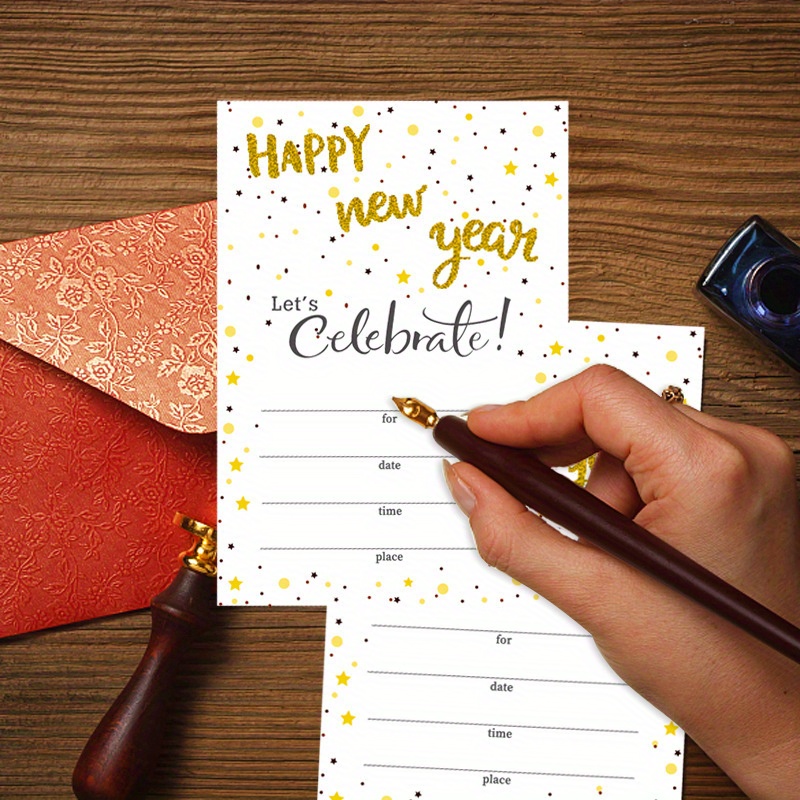 HAPPY
new
year
Let's
Celebrate!
for
date
time
place
for
date
time
place